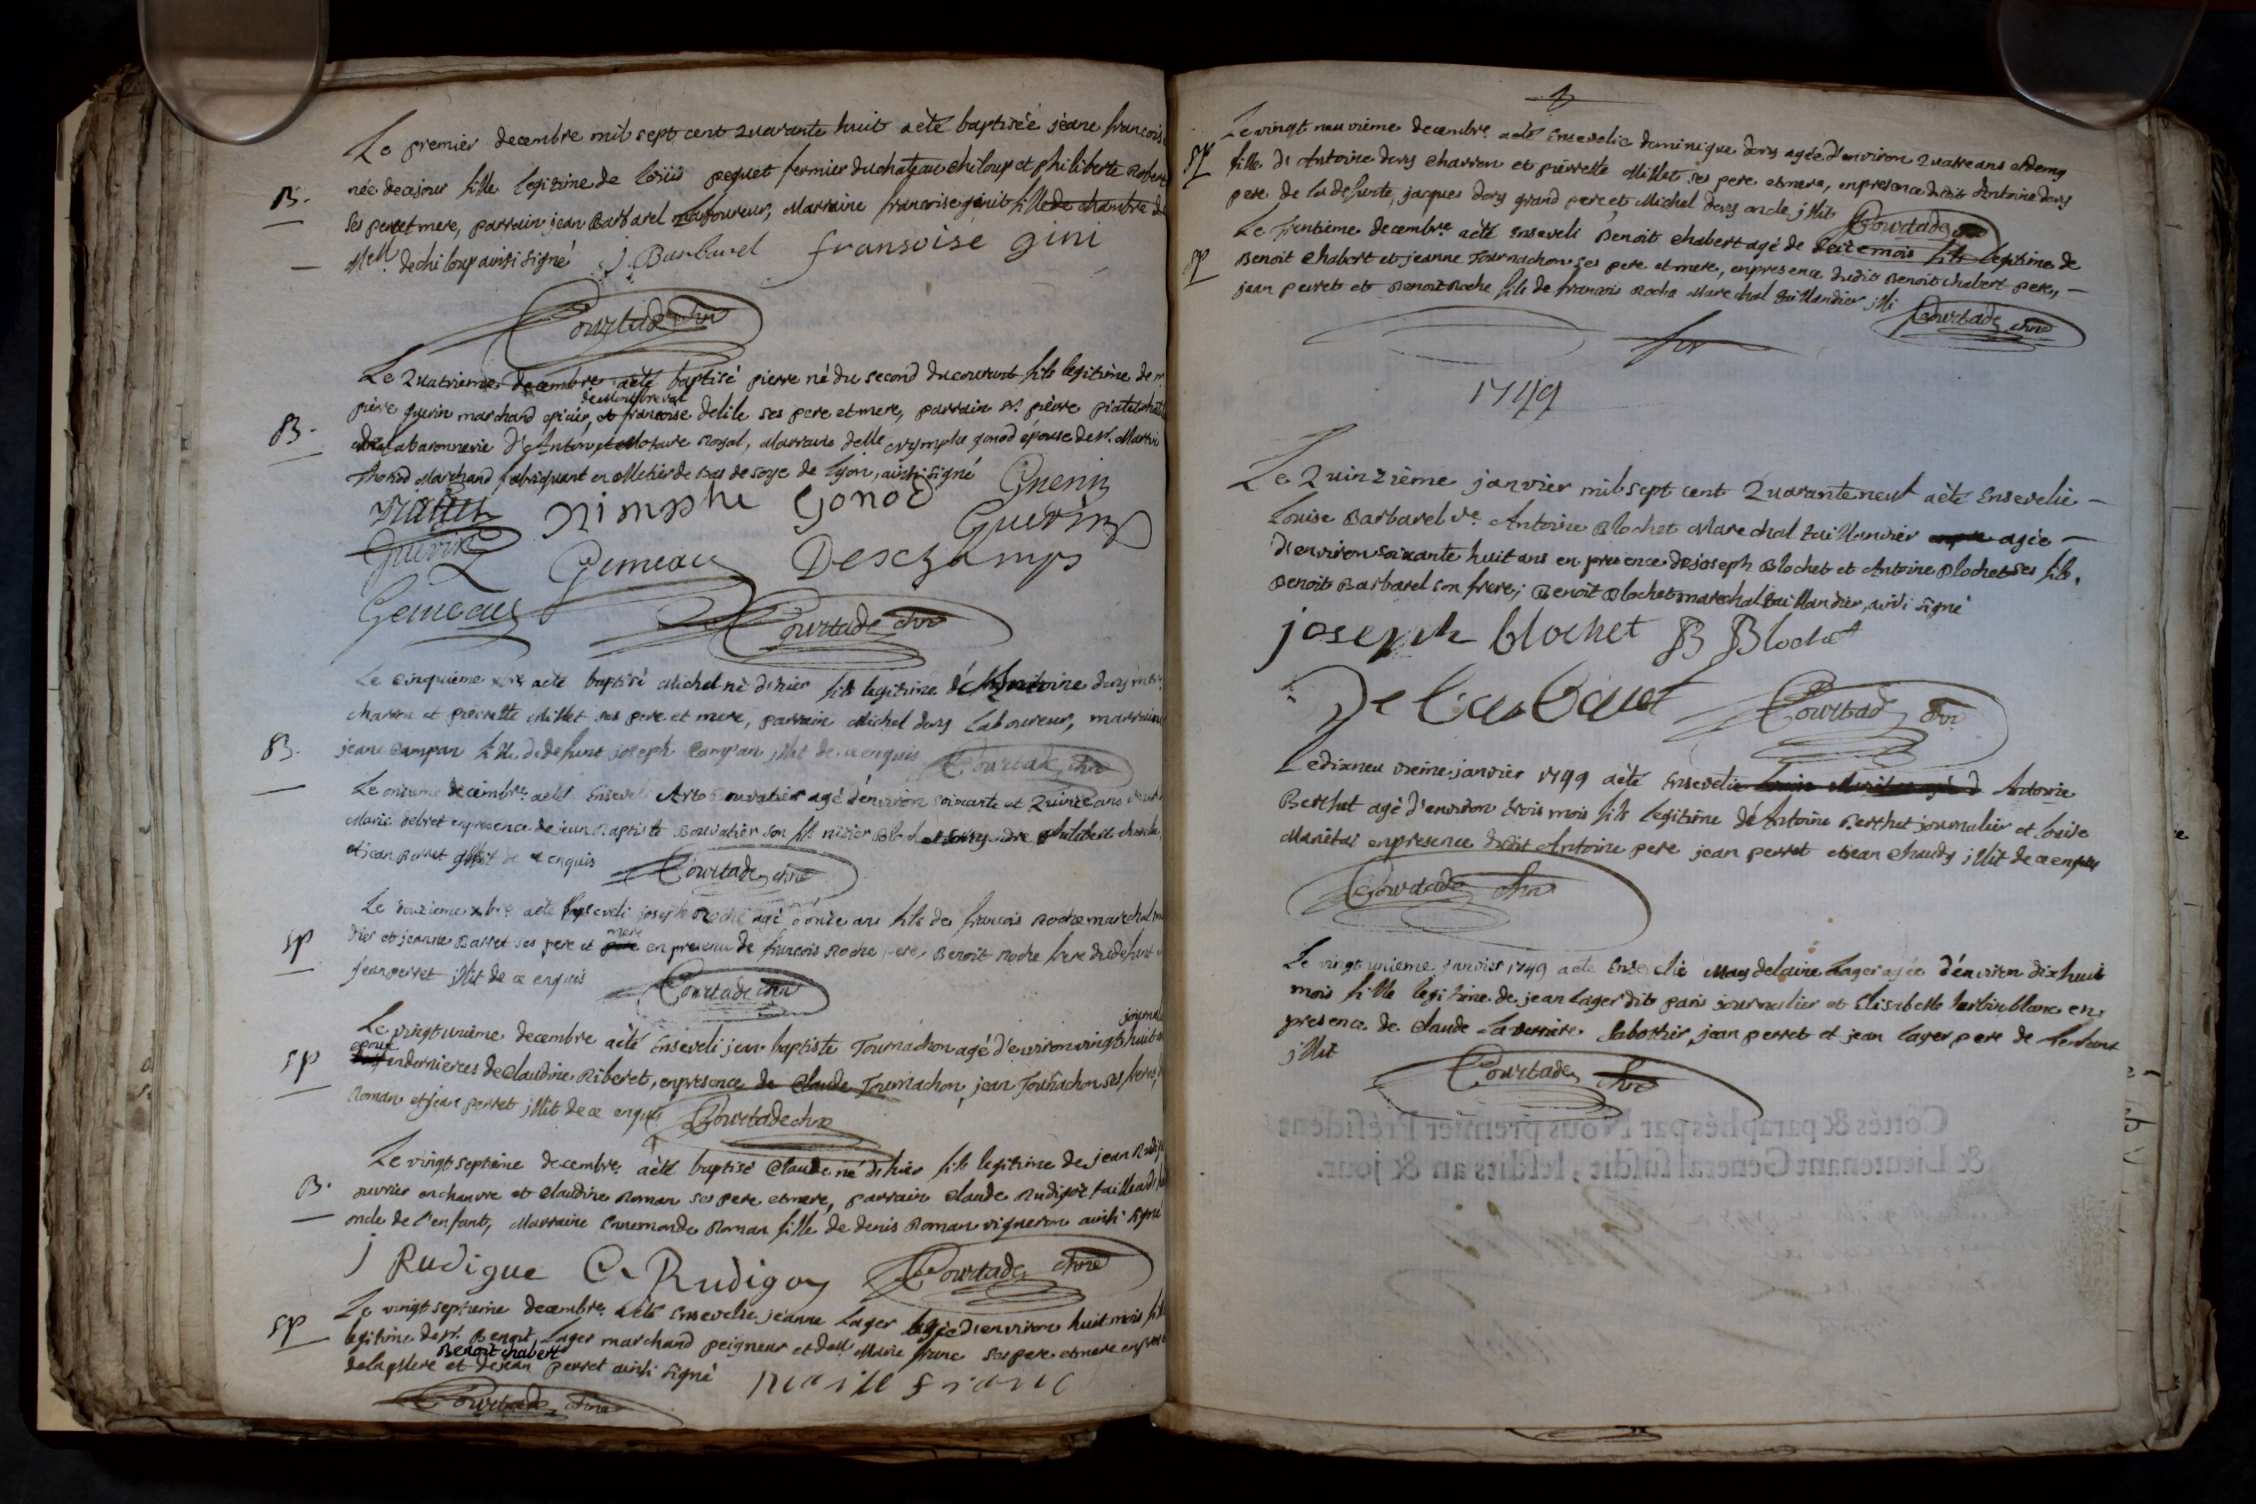 Le premier decembre mil sept cent quarante huit a èté baptisée jeane francoise
B.
née de ce jour fille legitime de loüis pequet fermier du chateau chiloup et philiberte Robert
ses pere et mere, parrain jean Barbarel laboureur, Marraine francoise génit fille de chambre de
Melle dechiloup ainsi signé j Barbarel fransoise gini
Courtade
Le quatrieme decembre a èté baptisé pierre né du second du courant fils legitime de
pierre guerin marchand epicier, et francoise delile ses pere et mere, parrain Sr. pierre
B.
de la baronnerie d'Anton et Notaire Royal, Marraine delle nymphe gonod épouse de Sr. Martin
Marchand fabriquant en Metier de bas de soye de lyon, ainsi signé Guerin
Nimphe Gonod
Guerin
Guerin Gemeau Deschamps
Gemeau Courtade
Le cinquième xbre a èté baptisé Michel né d'hier fils legitime d'Antoine dory
charron et pierrette Millet ses pere et mere, parrain Michel dory Laboureur, marraine
B.
jeane Campan fille de defunt joseph Campan illit de ce enquis Courtade
Le onzieme decembre a èté Enseveli Bouvatier agé d'environ soixante et quinze ans
Marie debret en presence de jean Baptiste Bouvatier son fils
et jean Perret illit de ce enquis Courtade
Le xbre a èté Enseveli joseph Roche agé d'onze ans fils de francois Roche marechal
SP
dier et jeanne Barret ses pere et mere en presence de francois Roche pere, Benoit Roche frere du defunt
jean perret illit de ce enquis Courtade
Le vingt unième decembre a èté Enseveli jean baptiste Tournachon agé d'environ vingt huit
SP
epoux en dernieres de Claudine Riberet, en presence de Claude Tournachon, jean Tournachon ses freres,
Roman et jean perret illit de ce enquis Courtade
Le vingt septième decembre a èté baptisé Claude né d'hier fils legitime de jean
B.
ouvrier en chanvre et Claudine Roman ses pere et mere, parrain Claude Rudigoz
oncle de l'enfant, Marraine Roman fille de denis Roman vigneron ainsi signé
j Rudigue C Rudigoz Courtade
Le vingt septieme decembre a èté Ensevelie jeanne Lager agée d'environ huit mois
SP
legitime de Sr. Benoit Lager marchand peigneur et delle Marie franc ses pere et mere
Benoit chabert
de la Mere et de jean perret ainsi signé marie franc
Courtade
Le vingt neuvième decembre a èté Ensevelie dominique dory agée d'environ quatre ans et demy
SP
fille d'Antoine dory charron et pierrette Millet ses pere et mere, en presence dudit Antoine dory
pere de la defunte, jacques dory grand pere et Michel dory oncle illit Courtade
Le trentième decembre a èté Enseveli Benoit chabert agé de mois fils legitime de
SP
Benoit chabert et jeanne Tournachon ses pere et mere, en presence dudit Benoit chabert pere,
jean perret et Benoit Roche fils de francois Roche Marechal taillandier illi Courtade
1749
Le quinzième janvier mil sept cent quarante neuf a èté Ensevelie
Louise Barbarel Ve Antoine Blochet Marechal taillandier agée
d'environ soixante huit ans en presence de joseph Blochet et Antoine Blochet ses fils.
Benoit Barbarel son frere; Benoit Blochet marechal taillandier, ainsi signé
joseph blochet B Blochet
Courtade
Le dix neuvieme janvier 1749 a èté Enseveli Antoine
Berthet agé d'environ trois mois fils legitime d'Antoine Berthet journalier et louise
en presence dudit Antoine pere jean perret et jean illit de ce enquis
Courtade
Le vingt unième janvier 1749 a èté Ensevelie Lager agée d'environ dix huit
mois fille legitime de jean Lager dit paris journalier et Elisabeth en
presence de Claude jean perret et jean Lager pere de l'enfant
illit
Courtade
Cottés & paraphés par Nous premier Président
& Lieutenant General susdit, lesdits an & jour.